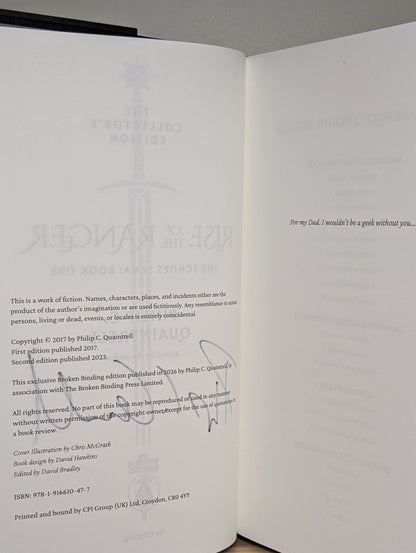 This is a work of fiction. Names, characters, places, and incidents either are the
product of the author's imagination or are used fictitiously. Any resemblance to actual
persons, living or dead, events, or locales is entirely coincidental.
Copyright © 2017 by Philip C. Quaintrell
First edition published 2017.
Second edition published 2023.
This exclusive Broken Binding edition published in 2026 by Philip C. Quaintrell in
association with The Broken Binding Press Limited.
All rights reserved. No part of this book may be reproduced or used in any manner
without written permission of the copyright owner except for the use of quotations in
a book review.
Cover Illustration by Chris McGrath
Book design by David Hawkins
Edited by David Bradley
ISBN: 978-1-916610-47-7
Printed and bound by CPI Group (UK) Ltd, Croydon, CR0 4YY
For my Dad. I wouldn't be a geek without you...